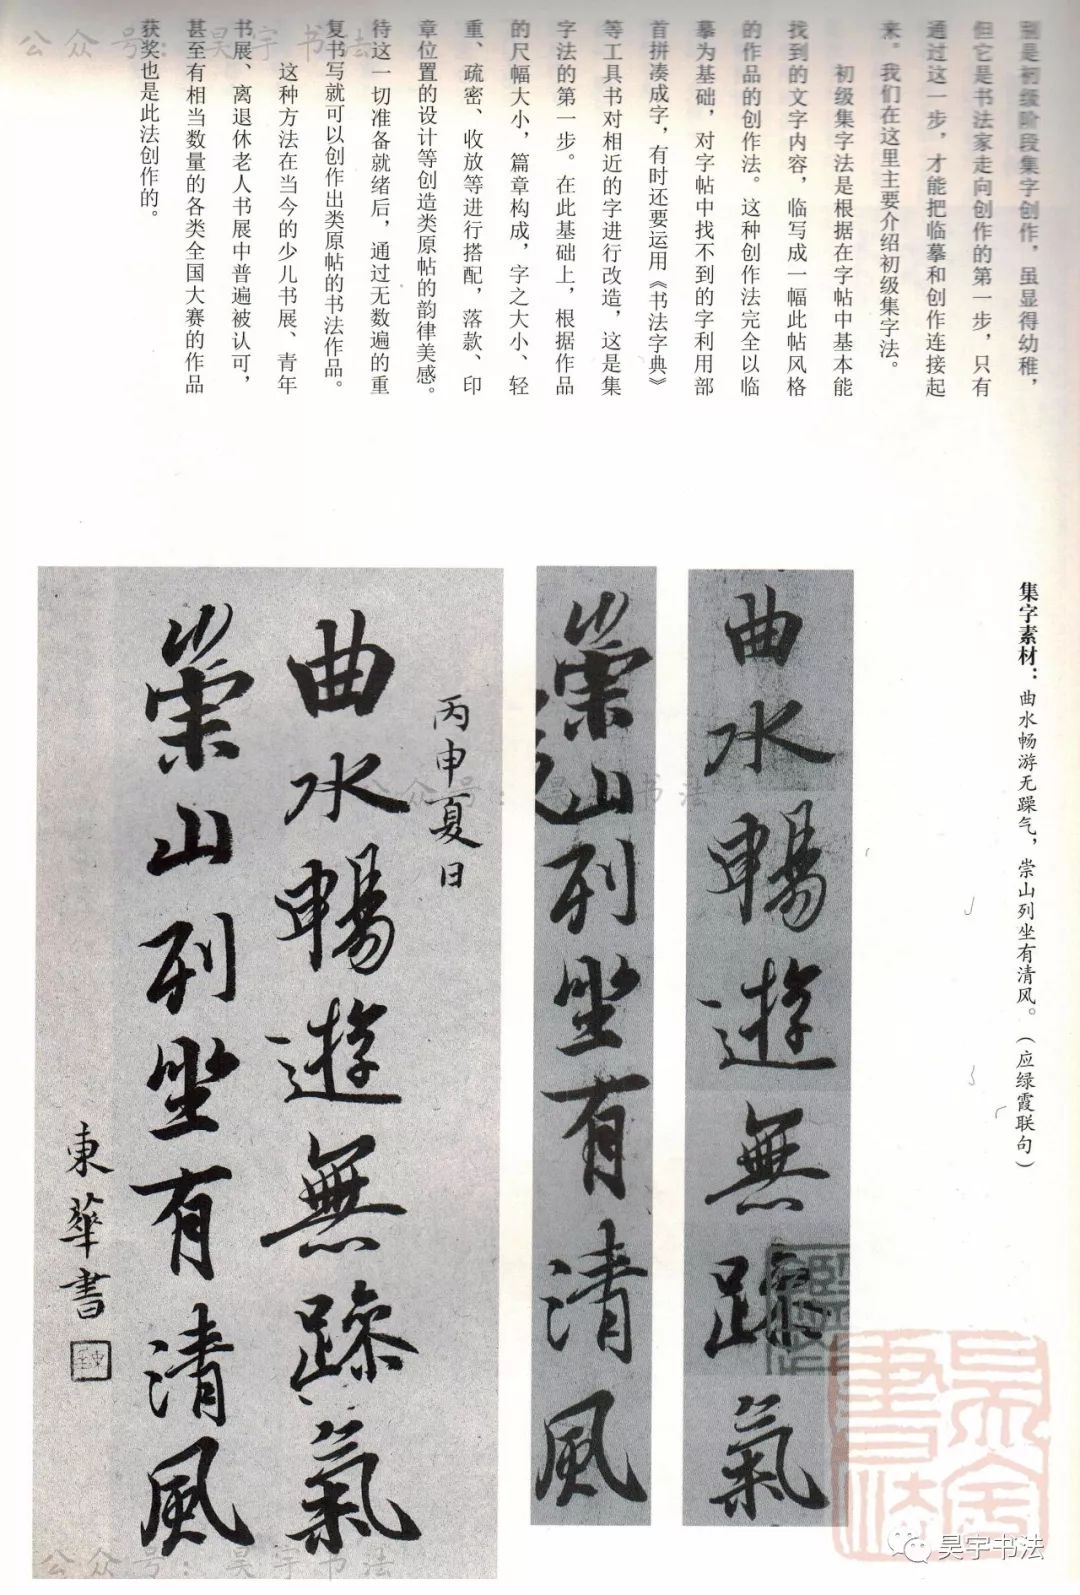 别是初级阶段集字创作，虽显得幼稚，
但它是书法家走向创作的第一步，只有
通过这一步，才能把临摹和创作连接起
来。我们在这里主要介绍初级集字法。
初级集字法是根据在字帖中基本能
找到的文字内容，临写成一幅此帖风格
的作品的创作法。这种创作法完全以临
摹为基础，对字帖中找不到的字利用部
首拼凑成字，有时还要运用《书法字典》
等工具书对相近的字进行改造，这是集
字法的第一步。在此基础上，根据作品
的尺幅大小，篇章构成，字之大小、轻
重、疏密、收放等进行搭配，落款、印
章位置的设计等创造类原帖的韵律美感。
待这一切准备就绪后，通过无数遍的重
复书写就可以创作出类原帖的书法作品。
这种方法在当今的少儿书展、青年
书展、离退休老人书展中普遍被认可，
甚至有相当数量的各类全国大赛的作品
获奖也是此法创作的。
集字素材：曲水畅游无躁气，崇山列坐有清风。（应绿霞联句）
曲水暢遊無躁氣
崇山列坐有清風
丙申夏日
曲水暢遊無躁氣
崇山列坐有清風
東華書
公众号：昊宇书法
公众号：昊宇书法
公众号：昊宇书法
昊宇書法
昊宇书法